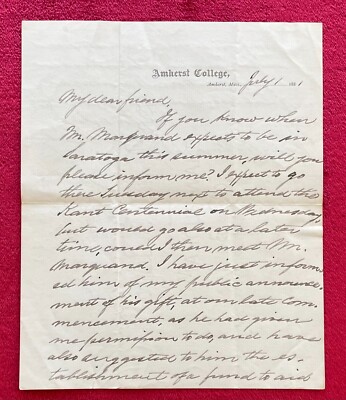 Amherst College,
Amherst, Mass., July 1 1881
My dear friend,
If you know when
Mr. Marquand expects to be in
Saratoga this summer, will you
please inform me? I expect to go
there Tuesday next to attend the
Kant Centennial on Wednesday,
but would go also at a later
time, could I then meet Mr.
Marquand. I have just inform
ed him of my public announce
ment of his gift, at our late Com
mencement, as he had given
me permission to do, and have
also suggested to him the es
tablishment of a fund to aid